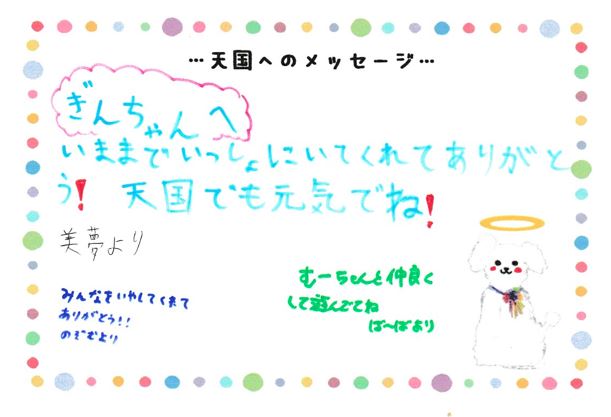 …天国へのメッセージ…
ぎんちゃんへ
いままでいっしょにいてくれてありがと
う! 天国でも元気でね!
美夢より
むーちゃんと仲良く
して遊んでてね
ば〜ばより
みんなをいやしてくれて
ありがとう!!
のぞむより